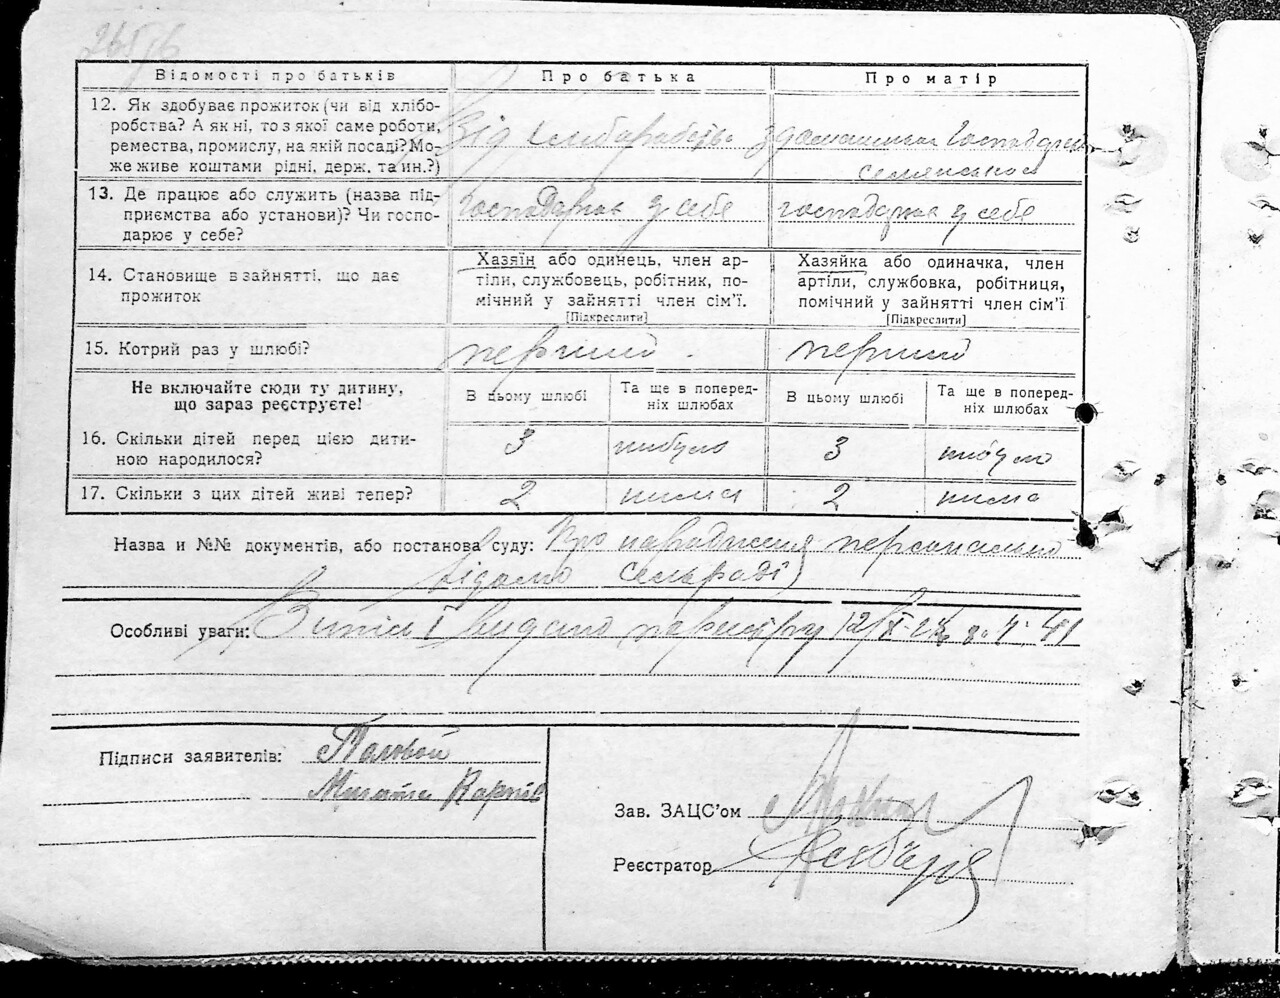 Відомості про батьків
Про батька
Про матір
12. Як здобуває прожиток (чи від хлібо-
робства? А як ні, то з якої саме роботи,
ремества, промислу, на якій посаді? Мо-
же живе коштами рідні, держ. та ин.?)
Від хлібаробства
з домашньог господарст
13. Де працює або служить (назва під-
приємства або установи)? Чи госпо-
дарює у себе?
Господарює у себе
господарює у себе
14. Становище в зайнятті, що дає
прожиток
Хазяїн або одинець, член ар-
тіли, службовець, робітник, по-
мічний у зайнятті член сім'ї.
[Підкреслити]
Хазяйка або одиначка, член
артіли, службовка, робітниця,
помічний у зайнятті член сім'ї
[Підкреслити]
15. Котрий раз у шлюбі?
перший
перший
Не включайте сюди ту дитину,
що зараз реєструєте!
В цьому шлюбі
Та ще в поперед-
ніх шлюбах
В цьому шлюбі
Та ще в поперед-
ніх шлюбах
16. Скільки дітей перед цією дити-
ною народилося?
3
небуло
3
небуло
17. Скільки з цих дітей живі тепер?
2
нима
2
нима
Назва и №№ документів, або постанова суду: Про народження персонально
відомо сельраді
Особливі уваги: Витяг видано
Підписи заявителів:
Зав. ЗАЦС'ом
Реєстратор